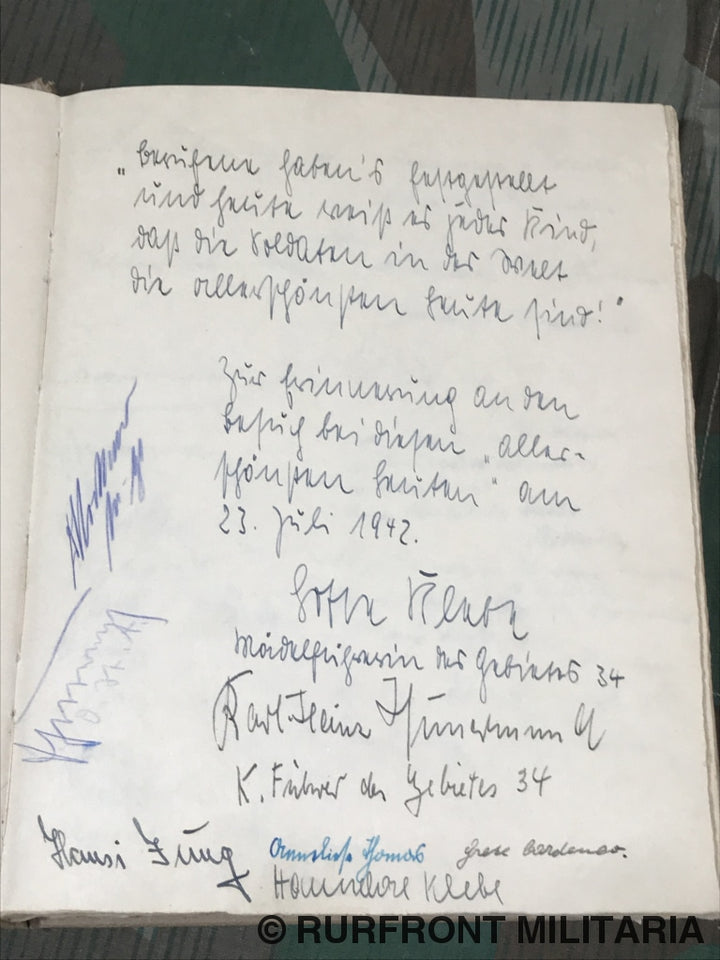 „Berufene haben's festgestellt
und heute weiß es jedes Kind,
daß die Soldaten in der Welt
die allerschönsten Leute sind!"
Zur Erinnerung an den
Besuch bei diesen „aller-
schönsten Leuten" am
23. Juli 1942.
Lotte Klebe
Mädelführerin des Gebietes 34
Karl-Heinz
K. Führer des Gebietes 34
Hansi Jung
Anneliese Thomas
Grete
Hannelore Klebe
© RURFRONT MILITARIA